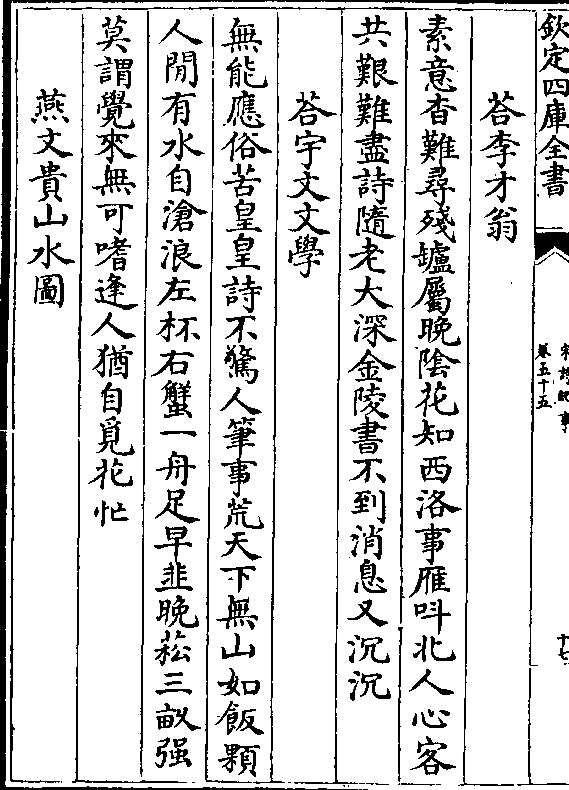 欽定四庫全書
宋詩紀事
卷五十五
十七
荅李才翁
素意杳難尋殘罏屬晚陰花知西洛事雁呌北人心客
共艱難盡詩隨老大深金陵書不到消息又沉沉
荅宇文文學
無能應俗苦皇皇詩不驚人筆事荒天下無山如飯顆
人閒有水自滄浪左杯右蟹一舟足早韭晚菘三畝强
莫謂覺來無可嗜逢人猶自覓花忙
燕文貴山水圖